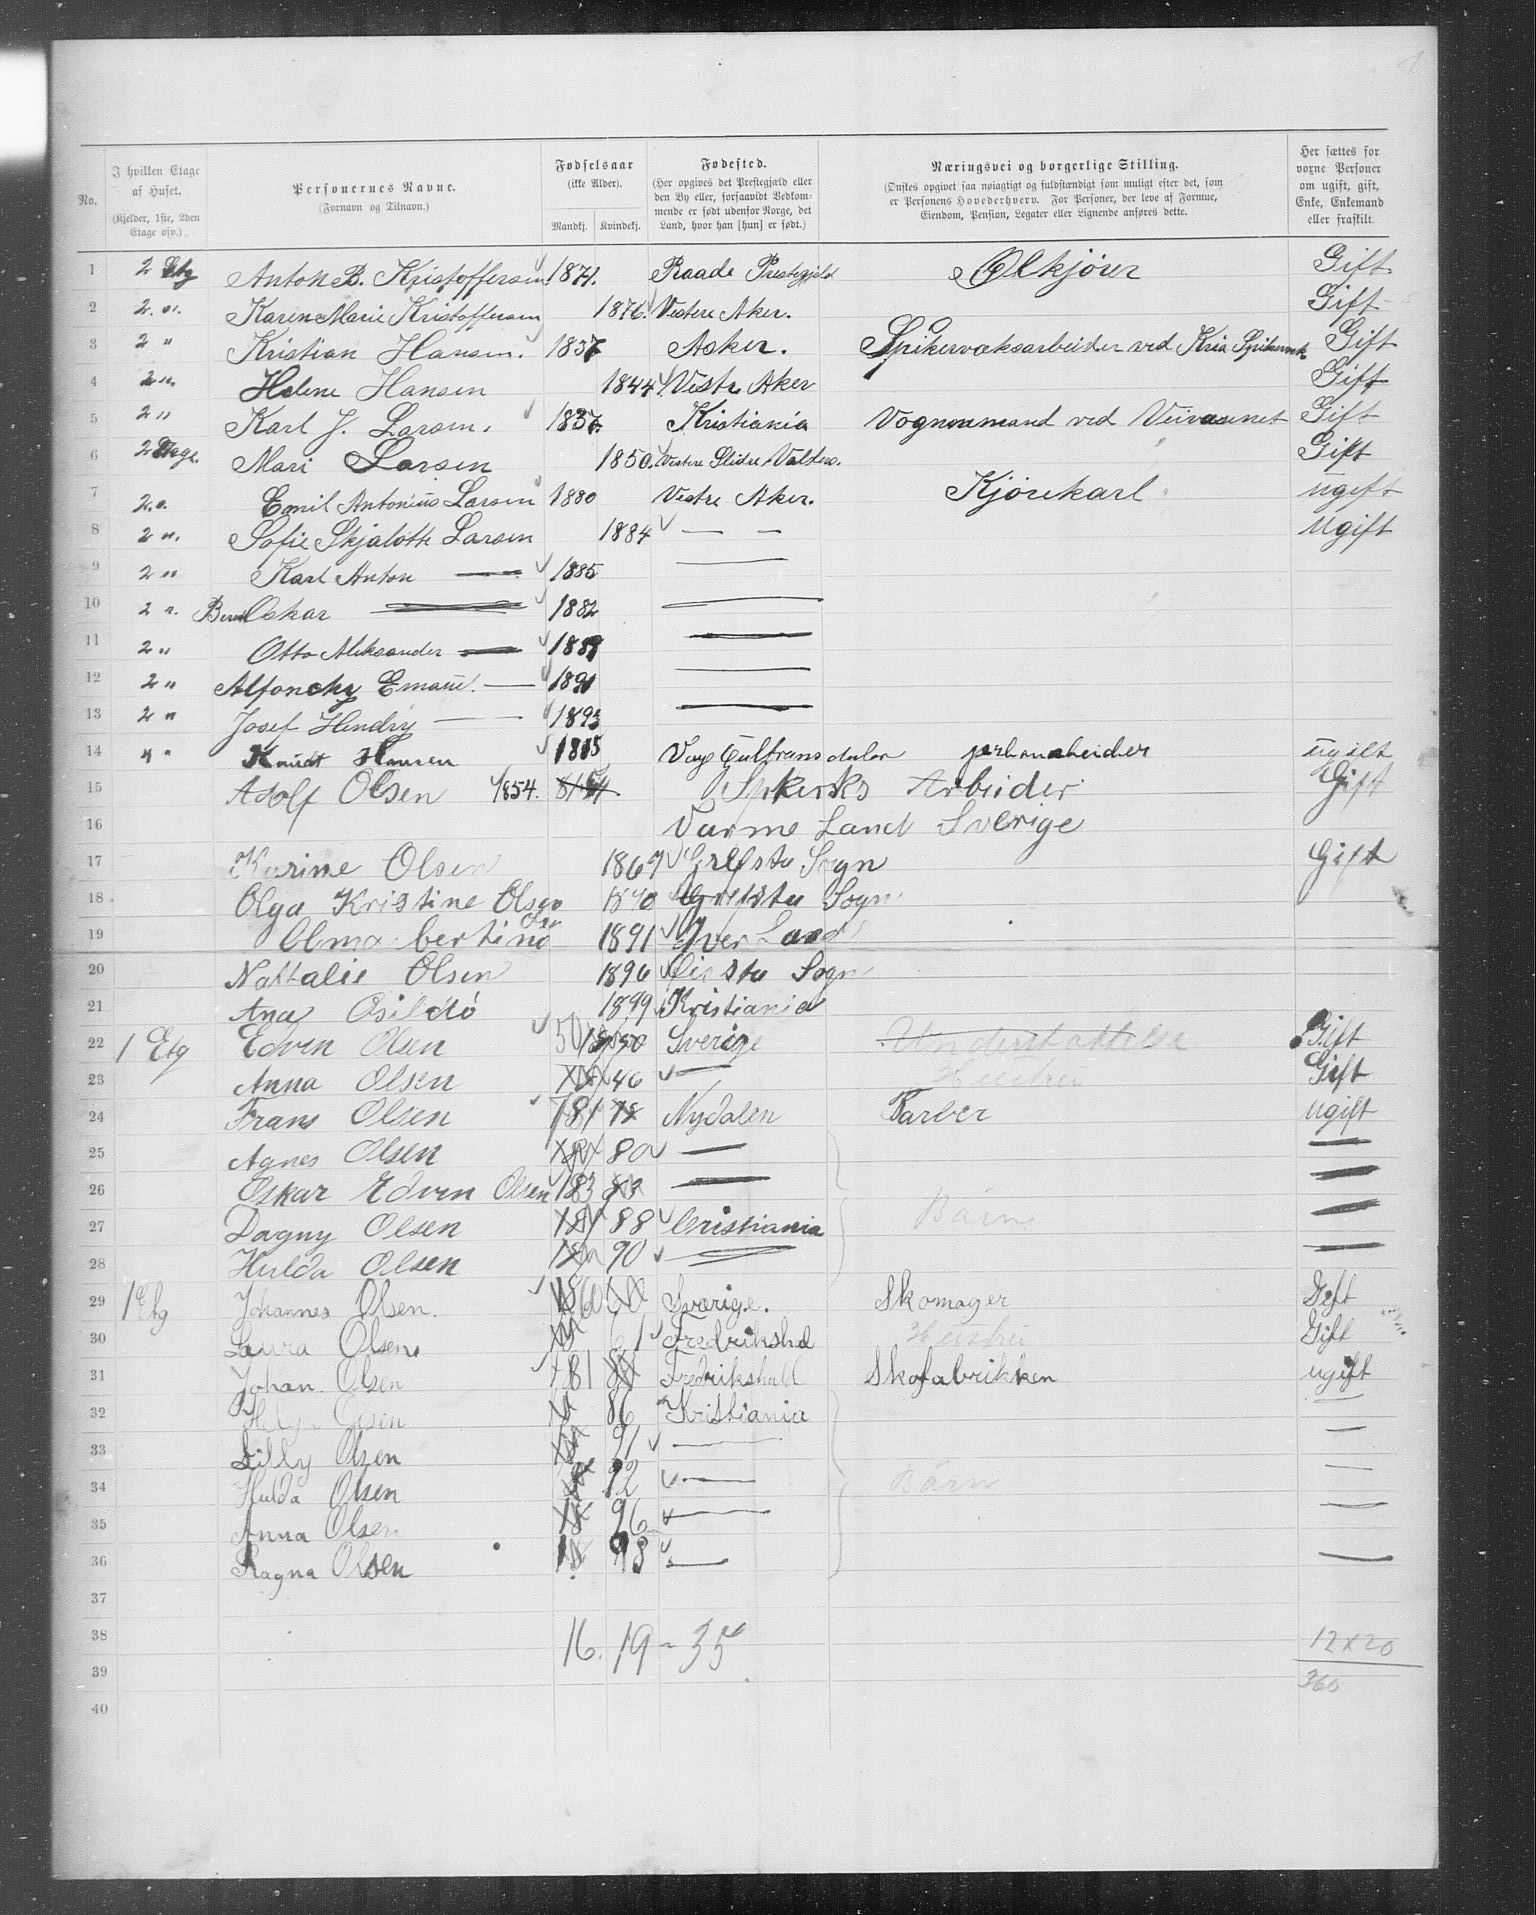 No. | I hvilken Etage af Huset. (Kjelder, 1ste, 2den Etage osv.) | Personernes Navne. (Fornavn og Tilnavn.) | Fødselsaar (ikke Alder). Mandkj. Kvindekj. | Fødested. (Her opgives det Prestegjæld eller den By eller, forsaavidt Vedkommende er født udenfor Norge, det Land, hvor han [hun] er født.) | Næringsvei og borgerlige Stilling. (Ønskes opgivet saa nøiagtigt og fuldstændigt som muligt efter det, som er Personens Hovederhverv. For Personer, der leve af Formue, Eiendom, Pension, Legater eller Lignende anføres dette. | Her sættes for voxne Personer om ugift, gift, Enke, Enkemand eller fraskilt.
1 2 Etg Anton B. Kristoffersen 1871. Raade Prestegjeld Ølkjører Gift
2 2. " Karen Marie Kristoffersen 1876. Vestere Aker. Gift
3 2 " Kristian Hansen. 1837 Asker. Spikerværksarbeider ved Kria Spikerverk Gift
4 2 " Helene Hansen 1844 Vestre Aker Gift
5 2 " Karl J. Larsen. 1837. Kristiania Vognmand ved Veivæsenet Gift
6 2 Mari Larsen 1850. Vestre Slidre Valders. Gift
7 2 " Emil Antonius Larsen 1880 Vestre Aker. Kjørekarl ugift
8 2 " Sofie Skjalotte Larsen 1884 — — Ugift
9 2 " Karl Anton — 1885 —
10 2 " Oskar — 1882 —
11 2 " Otto Aleksander — 1889 —
12 2 " Emanuel. — 1891 —
13 2 " Josef Hendry — 1893 —
14 " " Knudt Hansen 1815 ugift
15 Adolf Olsen 1854. Arbeider Gift
16 Varme Land Sverige
17 Karine Olsen 1867 Sogn Gift
18 Olga Kristine Olsen Sogn
19 Alma bertine Olsen 1891 Land
20 Nattalie Olsen 1896 Sogn
21 Ana 1899 Kristiania
22 1 Etg Edven Olsen 50 Sverige Gift
23 Anna Olsen 46 — Hustru Gift
24 Frans Olsen 181 78 Nydalen Farver ugift
25 Agnes Olsen 80 — —
26 Oskar Edven Olsen 183 — —
27 Dagny Olsen 88 Cristiania Bärn —
28 Hulda Olsen 90 — —
29 1 Etg Johannes Olsen. 60 Sværige. Skomager Gift
30 Laura Olsen 61 Fredrikshd Hustru Gift
31 Johan. Olsen 181 Fredrikshald Skofabrikken ugift
32 Olsen 86 Kristiania —
33 Lilly Olsen 91 — —
34 Hulda Olsen 92 — Bärn —
35 Anna Olsen 96 — —
36 Ragna Olsen 98 — —
37
38 16. 19 - 35 12 x 20
39 360
40